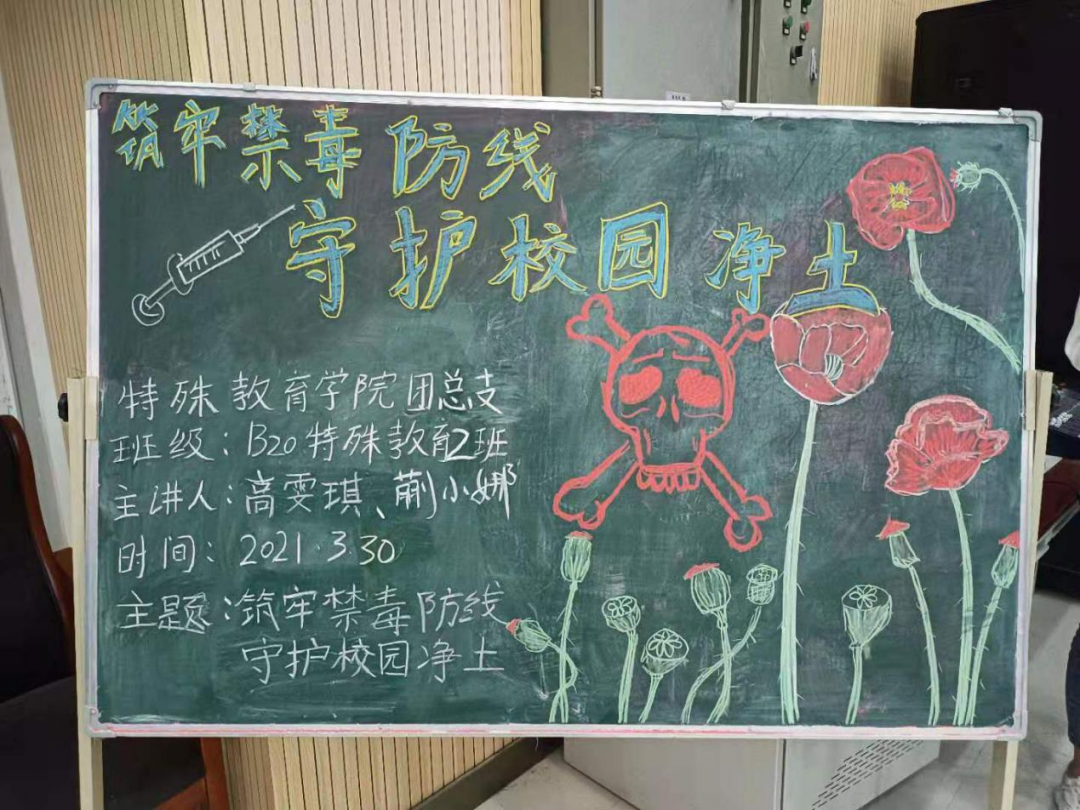 筑牢禁毒防线
守护校园净土
特殊教育学院团总支
班级：B20特殊教育2班
主讲人：高雯琪、蒯小娜
时间：2021.3.30
主题：筑牢禁毒防线
守护校园净土